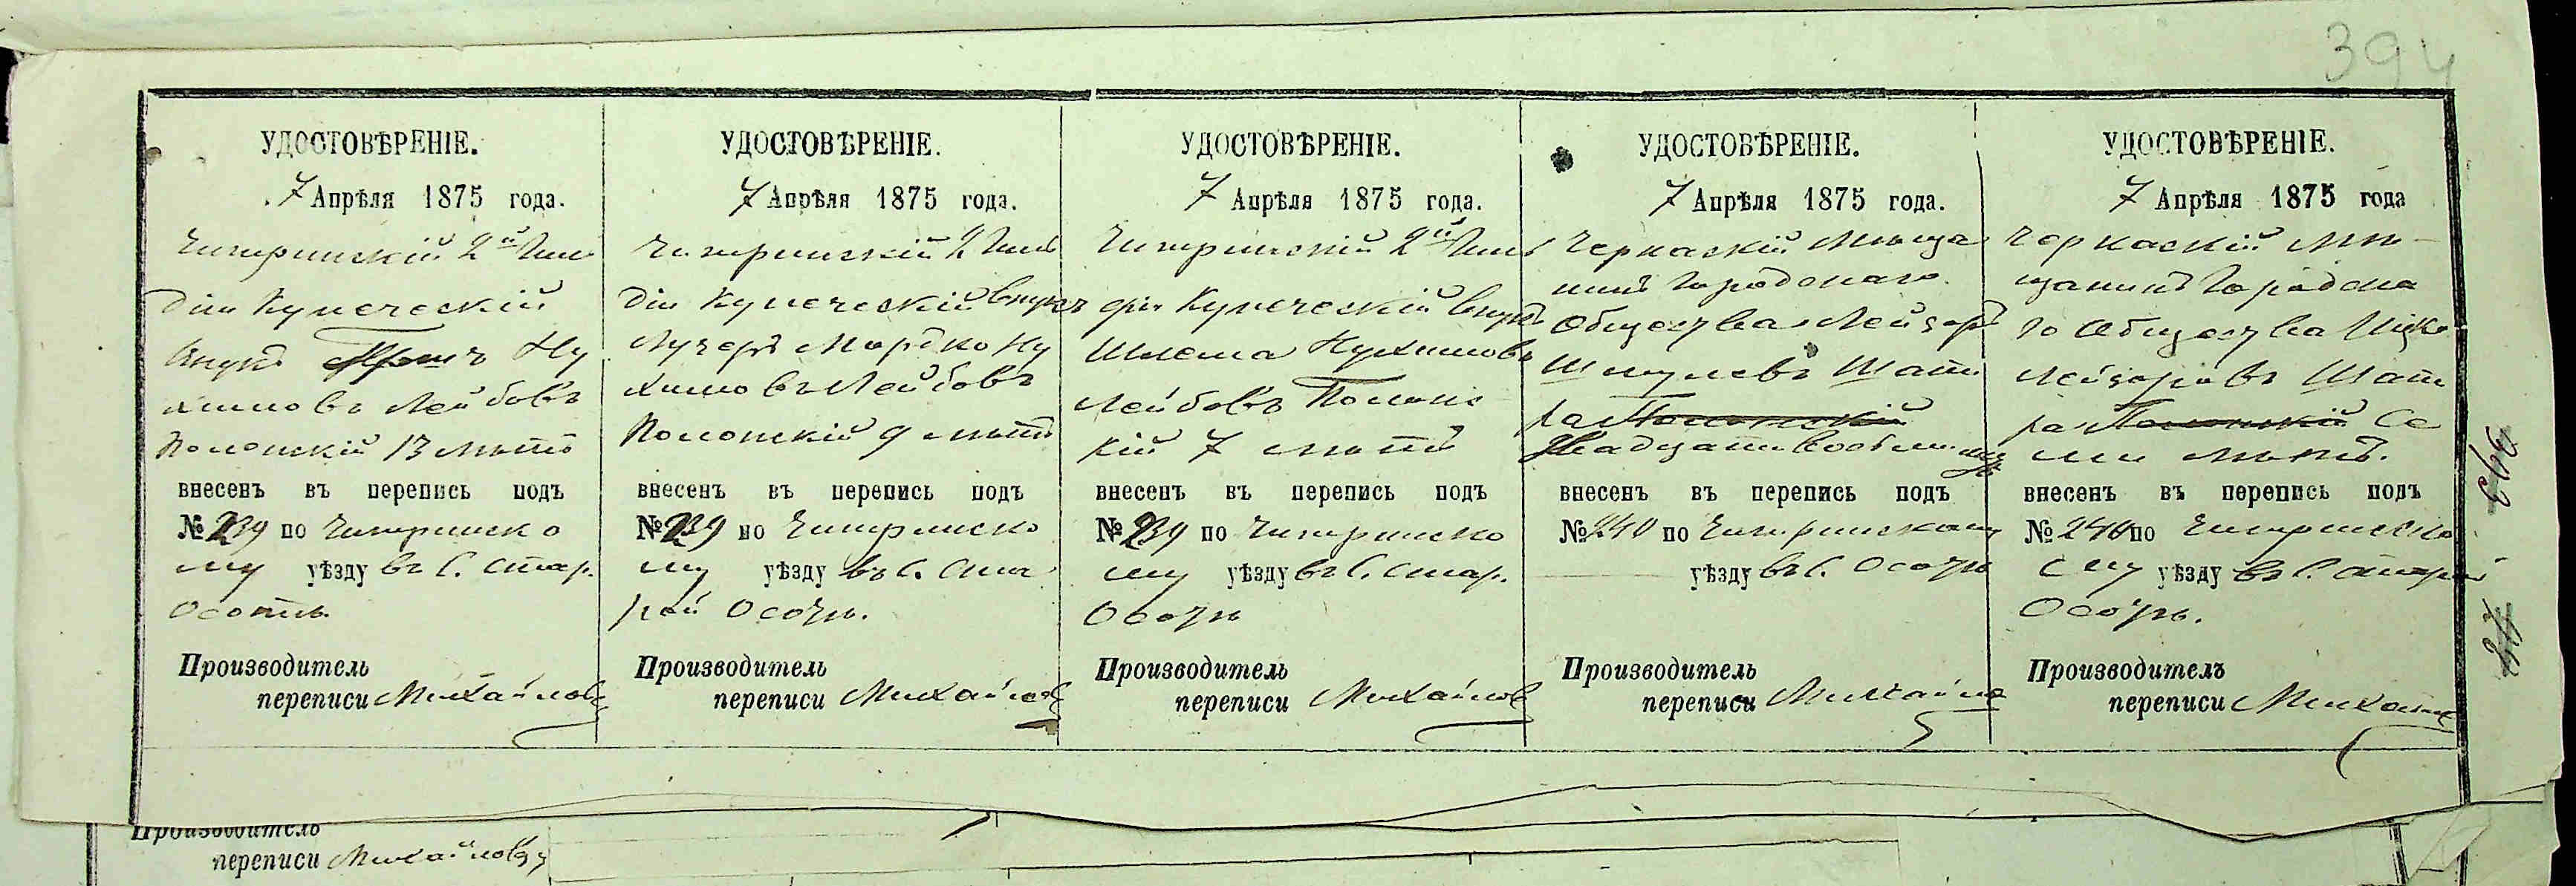 394
УДОСТОВѢРЕНІЕ.
7 Апрѣля 1875 года.
Чигиринскій 2й Гиль
діи Купеческій
Внукъ Ну
химовъ Лейбовъ
Полонскій 13 лѣтъ
внесенъ въ перепись подъ
№ 239 по Чигиринско
му уѣзду въ С. Стар.
Осотѣ.
Производитель
переписи Михайловъ
УДОСТОВѢРЕНІЕ.
7 Апрѣля 1875 года.
Чигиринскій 2 Гиль
діи Купеческій Внукъ
Лузеръ Мордко Ну
химовъ Лейбовъ
Полонскій 9 лѣтъ
внесенъ въ перепись подъ
№ 239 по Чигиринско
му уѣзду въ С. Ста
рой Осотѣ.
Производитель
переписи Михайловъ
УДОСТОВѢРЕНІЕ.
7 Апрѣля 1875 года.
Чигиринскій 2й Гиль
діи Купеческій Внукъ
Шлема Нухимовъ
Лейбовъ Полонс
кій 7 лѣтъ
внесенъ въ перепись подъ
№ 239 по Чигиринско
му уѣзду въ С. Стар.
Осотѣ
Производитель
переписи Михайловъ
УДОСТОВѢРЕНІЕ.
7 Апрѣля 1875 года.
Черкаскій Мѣща
нинъ Городскаго
Общества Лейзоръ
Шмулевъ Шапи
ра Полонскій
Двадцати восьми
внесенъ въ перепись подъ
№ 240 по Чигиринскому
уѣзду въ С. Осотѣ
Производитель
переписи Михайло
УДОСТОВѢРЕНІЕ.
7 Апрѣля 1875 года
Черкаскій Мѣ-
щанинъ Городска
го Общества Ицко
Лейзоровъ Шапи
ра Полонскій Се
ми лѣтъ.
внесенъ въ перепись подъ
№ 240 по Чигиринско
му уѣзду въ С. Старой
Осотѣ.
Производитель
переписи Михайлов
393
Производитель
переписи Михайловъ